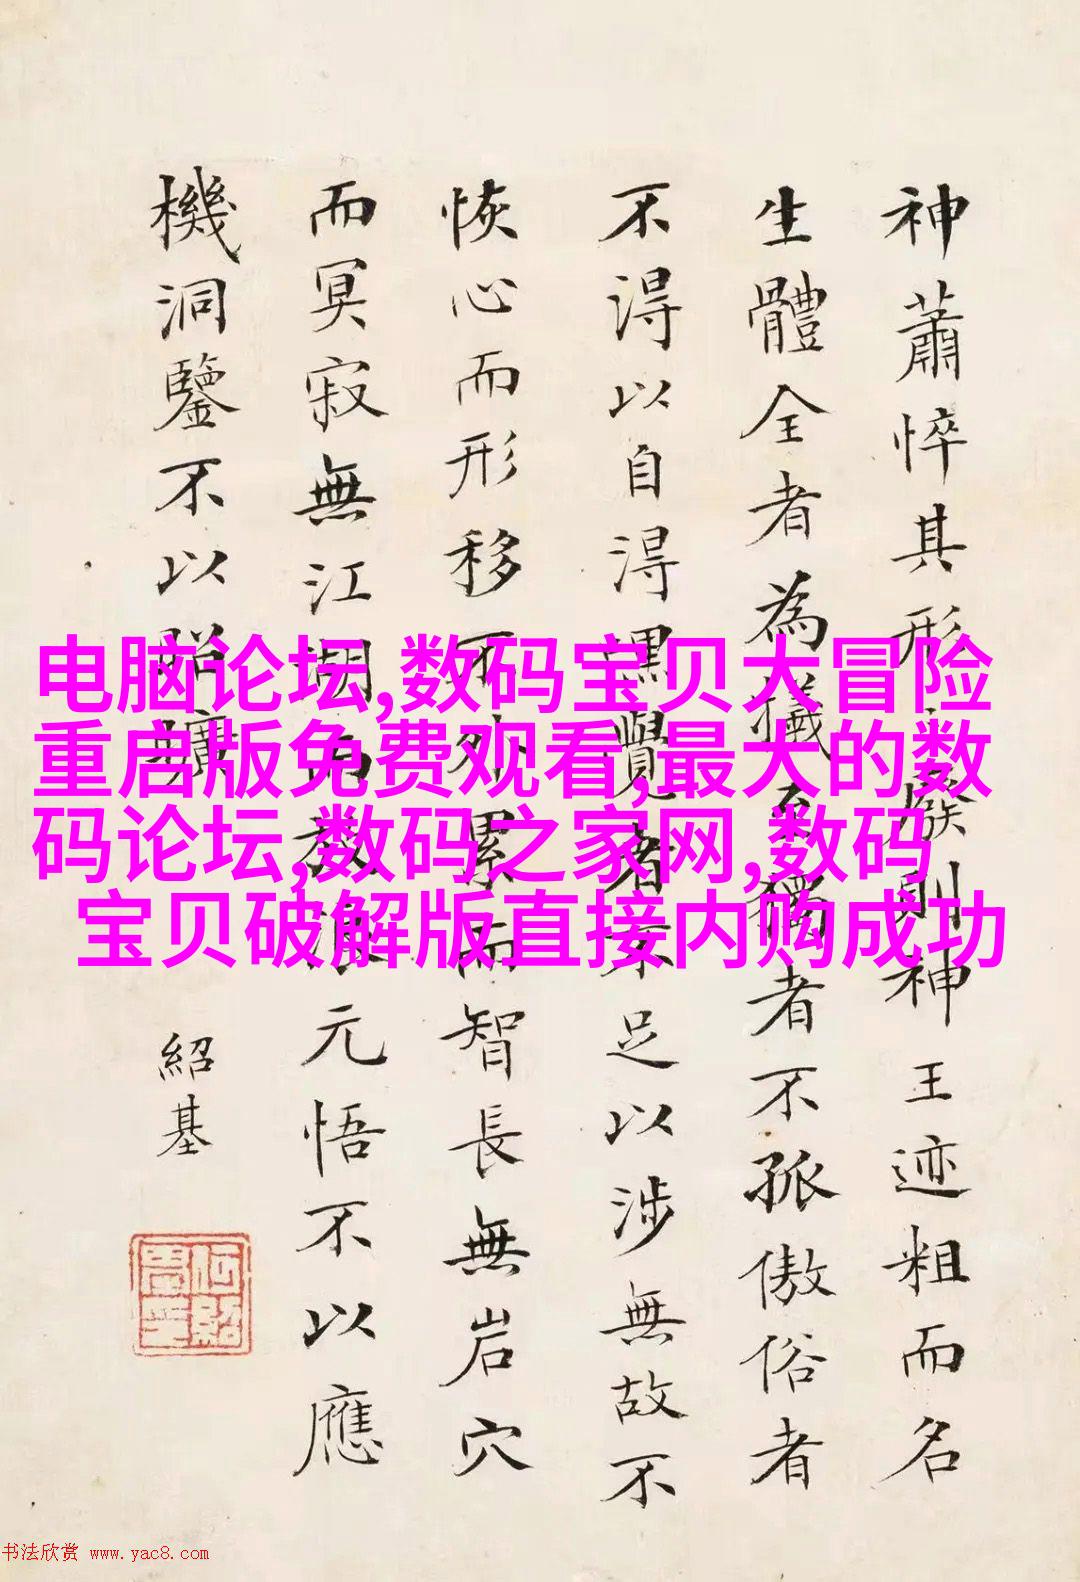 神蕭悴其形廢則神王迹粗而名
生體全者為犧至獨者不孤傲俗者
不得以自得嘿覺者不足以涉無故不
恢心而形移不外累而智長無岩穴
而冥寂無江湖而放浪元悟不以應
機洞鑒不以昭曠
紹基
电脑论坛,数码宝贝大冒险
重启版免费观看,最大的数
码论坛,数码之家网,数码
宝贝破解版直接内购成功
书法欣赏 www.yac8.com